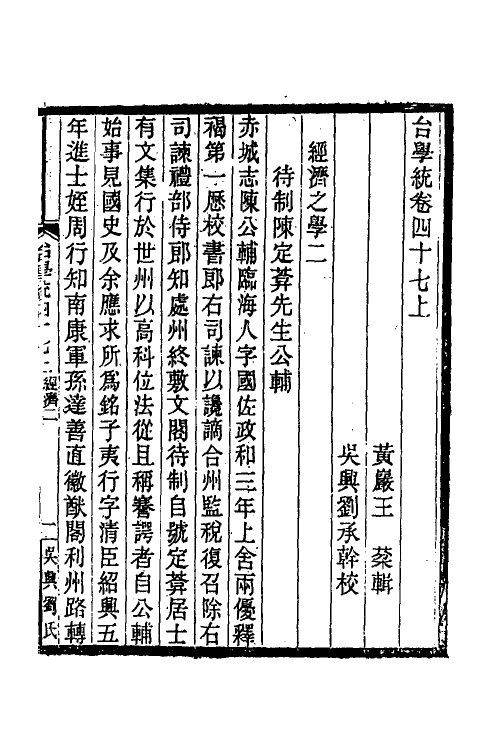 台學統卷四十七上
黃巖王　棻輯
吳興劉承幹校
經濟之學二
待制陳定菴先生公輔
赤城志陳公輔臨海人字國佐政和三年上舍兩優釋
褐第一歷校書郎右司諫以讒謫合州監稅復召除右
司諫禮部侍郎知處州終敷文閣待制自號定菴居士
有文集行於世州以高科位法從且稱謇諤者自公輔
始事見國史及余應求所爲銘子夷行字清臣紹興五
年進士姪周行知南康軍孫達善直徽猷閣利州路轉
台學統四十七上　經濟二　一　吳興劉氏